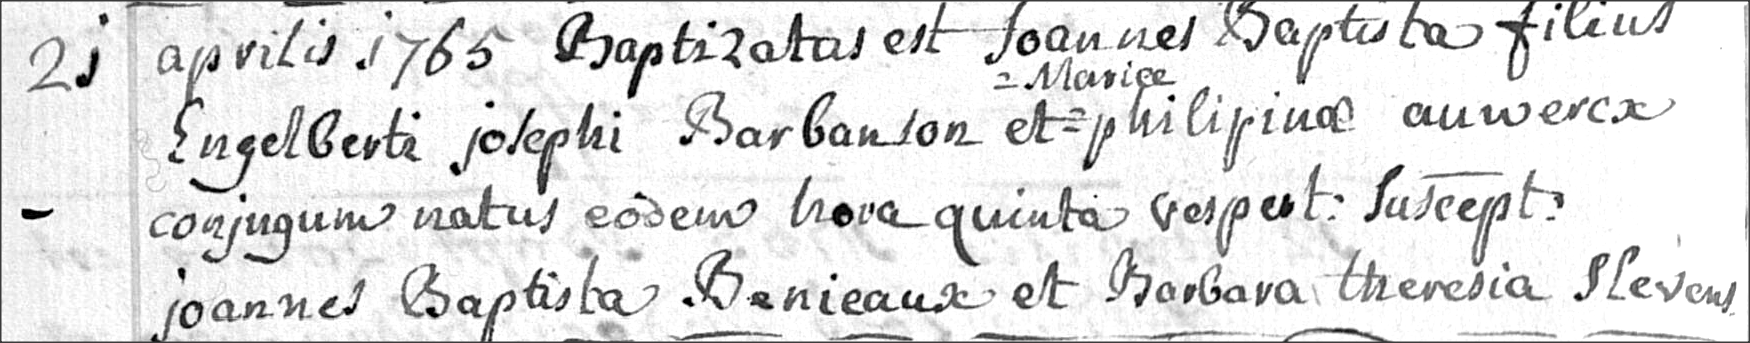 21 aprilis 1765 Baptizatus est Joannes Baptista filius
= Mariæ
Engelberti josephi Barbanson et = philipinæ auwercx
conjugum natus eodem hora quinta vespert: Suscept:
joannes Baptista Benieaux et Barbara theresia Stevens